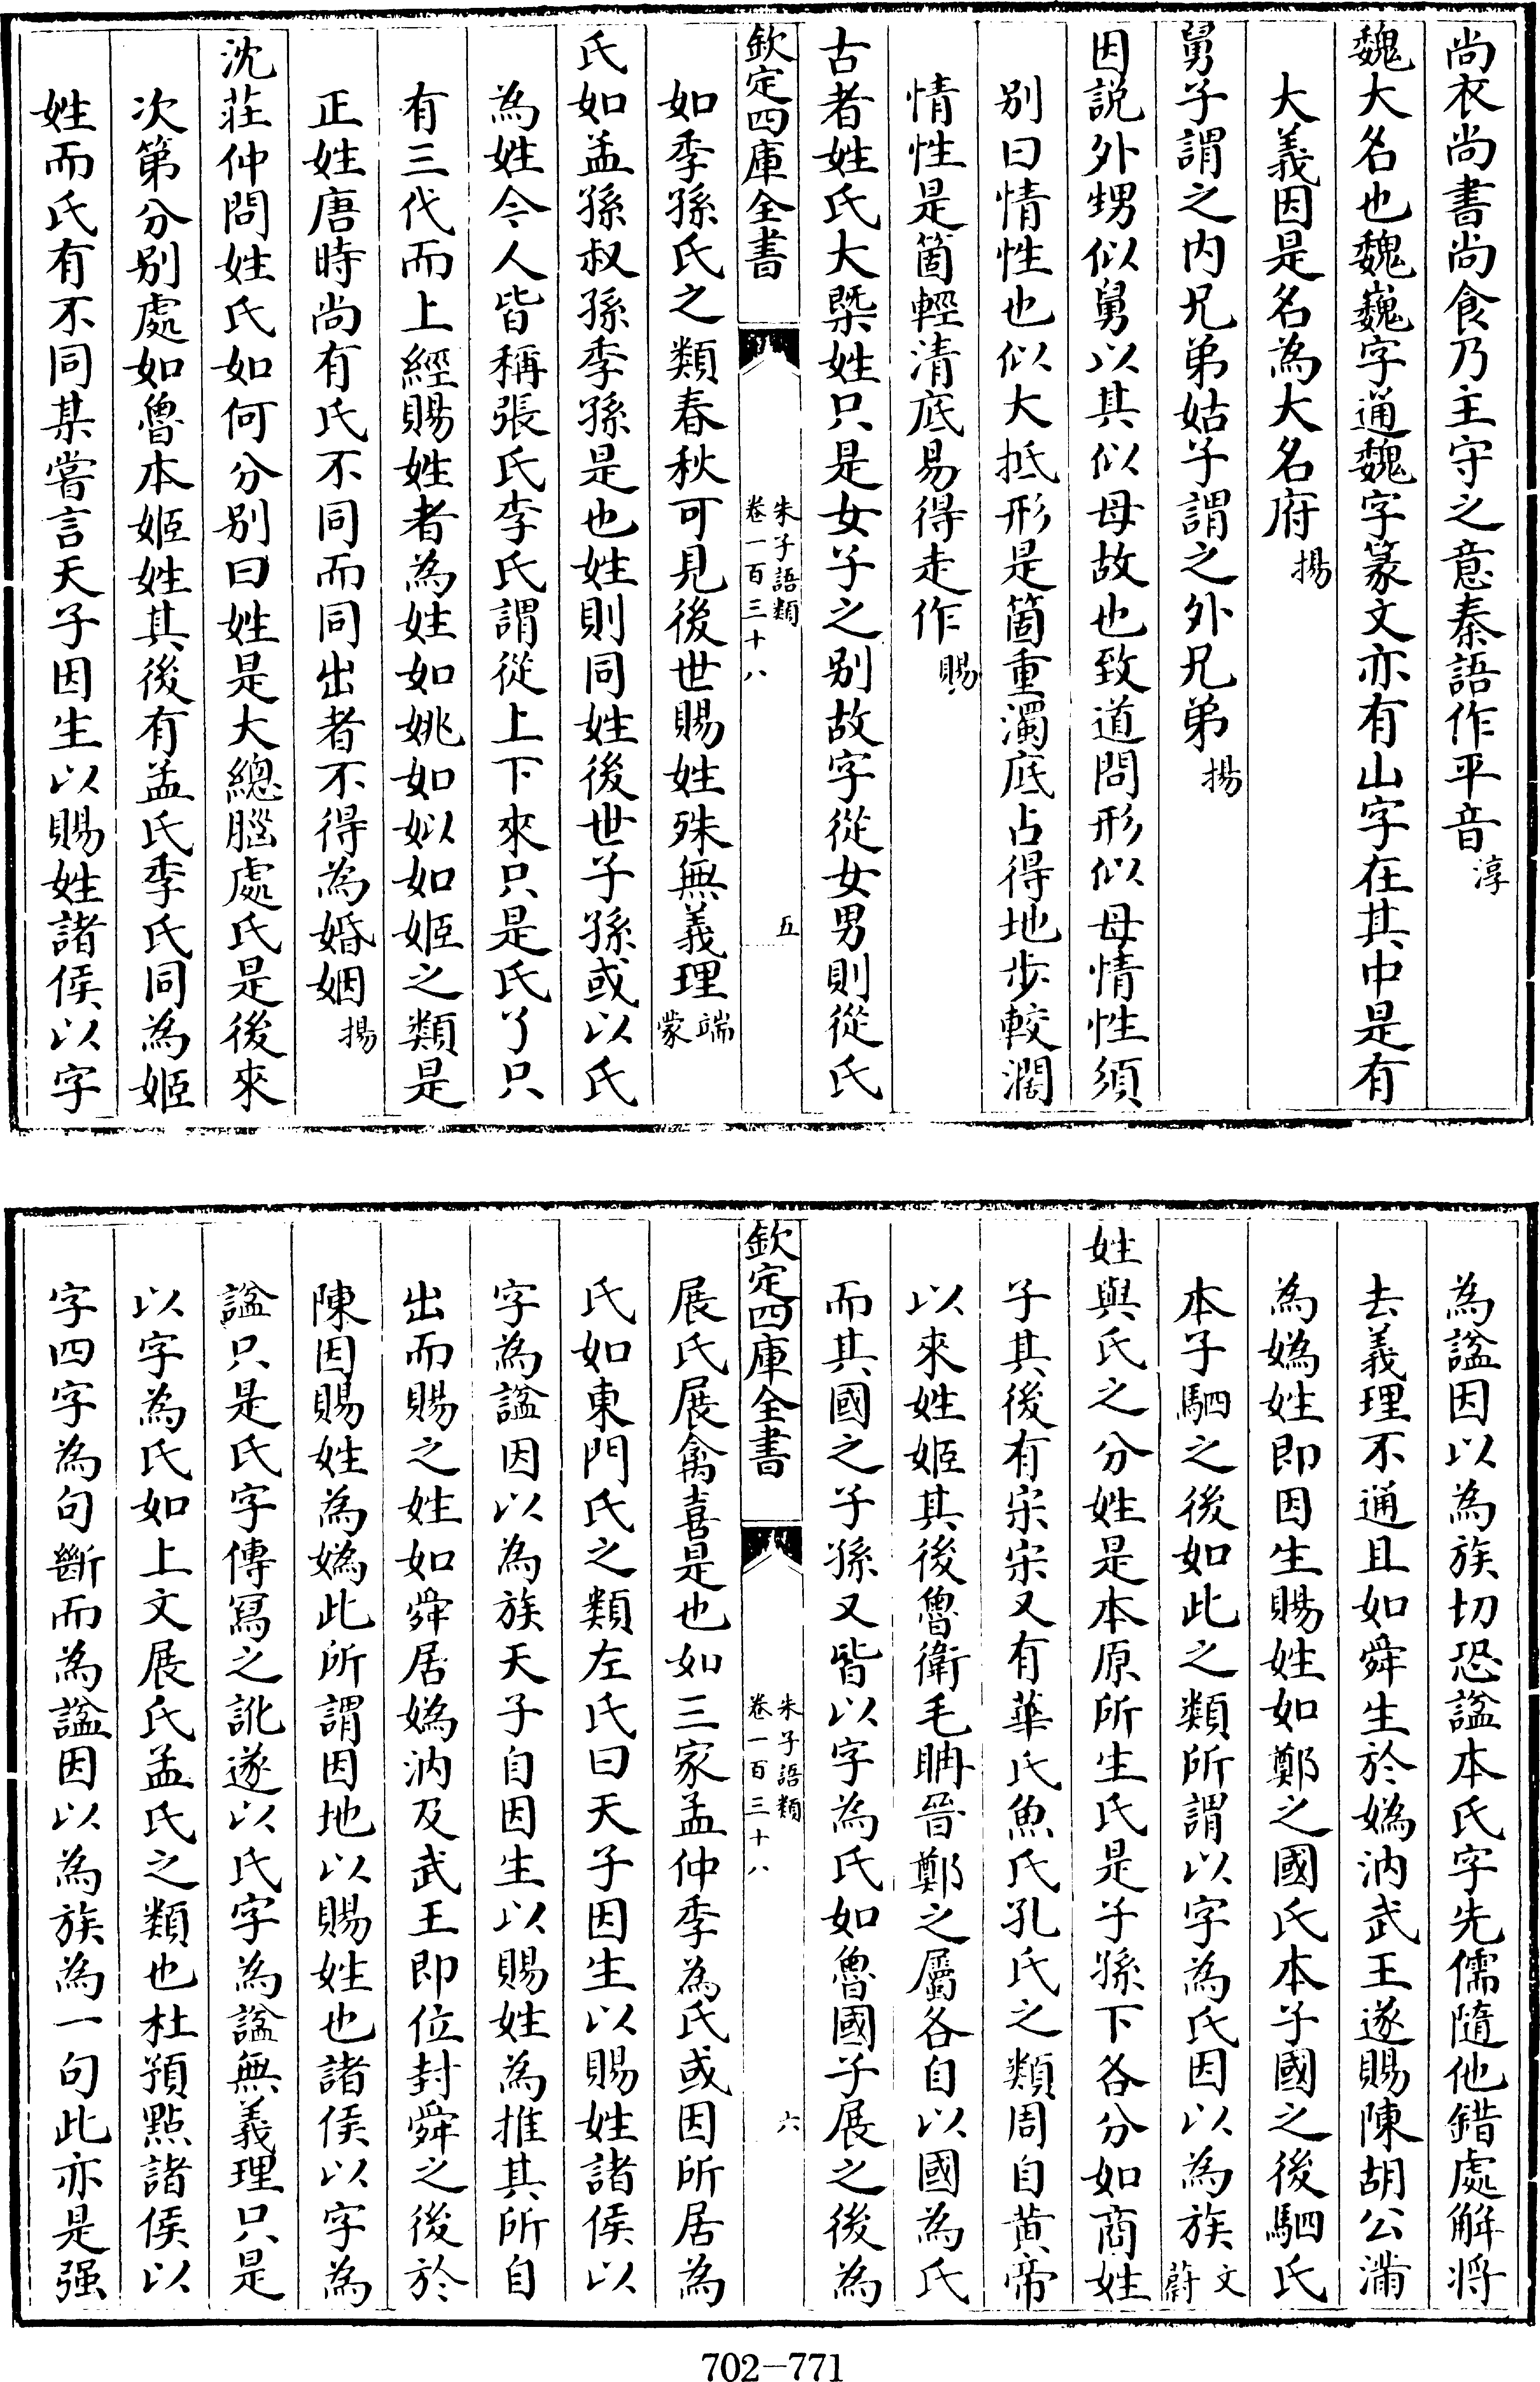 尚衣尚書尚食乃主守之意秦語作平音淳
魏大名也魏巍字通魏字篆文亦有山字在其中是有
大義因是名為大名府揚
舅子謂之内兄弟姑子謂之外兄弟揚
因説外甥似舅以其似母故也致道問形似母情性須
別曰情性也似大抵形是箇重濁底占得地歩較濶
情性是箇輕清底易得走作賜
古者姓氏大槩姓只是女子之別故字從女男則從氏
欽定四庫全書
朱子語類
卷一百三十八
五
如季孫氏之類春秋可見後世賜姓殊無義理端蒙
氏如孟孫叔孫季孫是也姓則同姓後世子孫或以氏
為姓今人皆稱張氏李氏謂從上下來只是氏了只
有三代而上經賜姓者為姓如姚如姒如姬之類是
正姓唐時尚有氏不同而同出者不得為婚姻揚
沈莊仲問姓氏如何分別曰姓是大總腦處氏是後來
次第分別處如魯本姬姓其後有孟氏季氏同為姬
姓而氏有不同某嘗言天子因生以賜姓諸侯以字
為諡因以為族切恐諡本氏字先儒隨他錯處解将
去義理不通且如舜生於媯汭武王遂賜陳胡公滿
為媯姓即因生賜姓如鄭之國氏本子國之後駟氏
本子駟之後如此之類所謂以字為氏因以為族文蔚
姓與氏之分姓是本原所生氏是子孫下各分如商姓
子其後有宋宋又有華氏魚氏孔氏之類周自黄帝
以來姓姬其後魯衛毛聃晉鄭之屬各自以國為氏
而其國之子孫又皆以字為氏如魯國子展之後為
欽定四庫全書
朱子語類
卷一百三十八
六
展氏展禽喜是也如三家孟仲季為氏或因所居為
氏如東門氏之類左氏曰天子因生以賜姓諸侯以
字為諡因以為族天子自因生以賜姓為推其所自
出而賜之姓如舜居媯汭及武王即位封舜之後於
陳因賜姓為媯此所謂因地以賜姓也諸侯以字為
諡只是氏字傳寫之訛遂以氏字為諡無義理只是
以字為氏如上文展氏孟氏之類也杜預點諸侯以
字四字為句斷而為諡因以為族為一句此亦是强
702-771